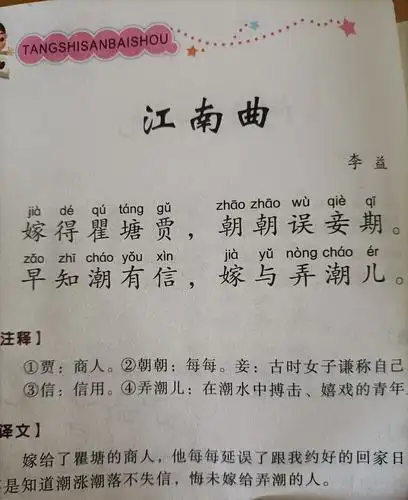 TANGSHISANBAISHOU
江南曲
李益
jià dé qú táng gǔ zhāo zhāo wù qiè qī
嫁得瞿塘贾，朝朝误妾期。
zǎo zhī cháo yǒu xìn jià yǔ nòng cháo ér
早知潮有信，嫁与弄潮儿。
注释】
①贾：商人。②朝朝：每每。妾：古时女子谦称自己
③信：信用。④弄潮儿：在潮水中搏击、嬉戏的青年
译文】
嫁给了瞿塘的商人，他每每延误了跟我约好的回家日
是知道潮涨潮落不失信，悔未嫁给弄潮的人。